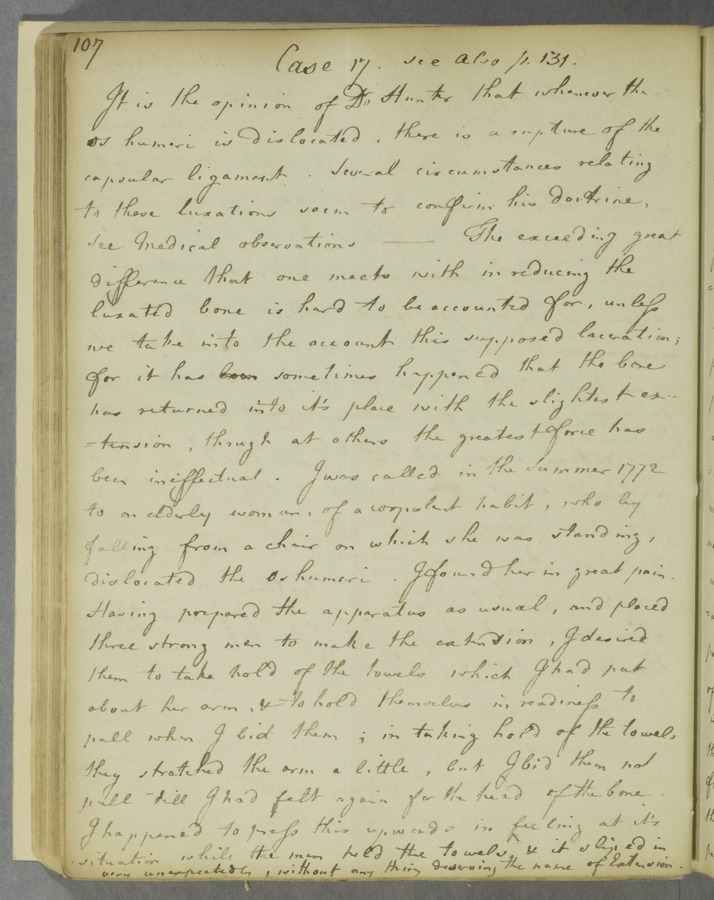 107
Case 17. see also p. 131.
It is the opinion of Dr Hunter that whenever the
os humeri is dislocated, there is a rupture of the
capsular ligament. Several circumstances relating
to these luxations seem to confirm his doctrine,
see Medical observations —— The exceeding great
difference that one meets with in reducing the
luxated bone is hard to be accounted for, unless
we take into the account this supposed laceration;
for it has been sometimes happened that the bone
has returned into it's place with the slightest ex-
-tension, though at others the greatest force has
been ineffectual. I was called in the Summer 1772
to an elderly woman, of a corpulent habit, who by
falling from a chair on which she was standing,
dislocated the Os humeri. I found her in great pain.
Having prepared the apparatus as usual, and placed
three strong men to make the extension, I desired
them to take hold of the towels which I had put
about her arm, & to hold themselves in readiness to
pull when I bid them; in taking hold of the towels
they stretched the arm a little, but I bid them not
pull till I had felt again for the head of the bone.
I happened to press this upwards in feeling at it's
situation while the men held the towels, & it slipped in
very unexpectedly, without any thing deserving the name of Extension.